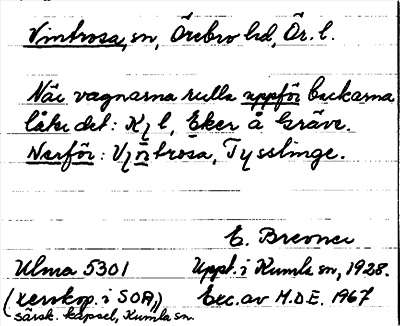 Vintrosa, sn, Örebro hd, Ör. l.
När vagnarna rulla uppför backarna
låte det: Kʅ l, Eker å Gräve.
Nerför: Vʅntrosa, Tysslinge.
E. Brevner
Ulma 5301 Uppt. i Kumla sn, 1928.
(xerokop. i SOA, Exc. av M.D.E. 1967
särsk. kapsel, Kumla sn.